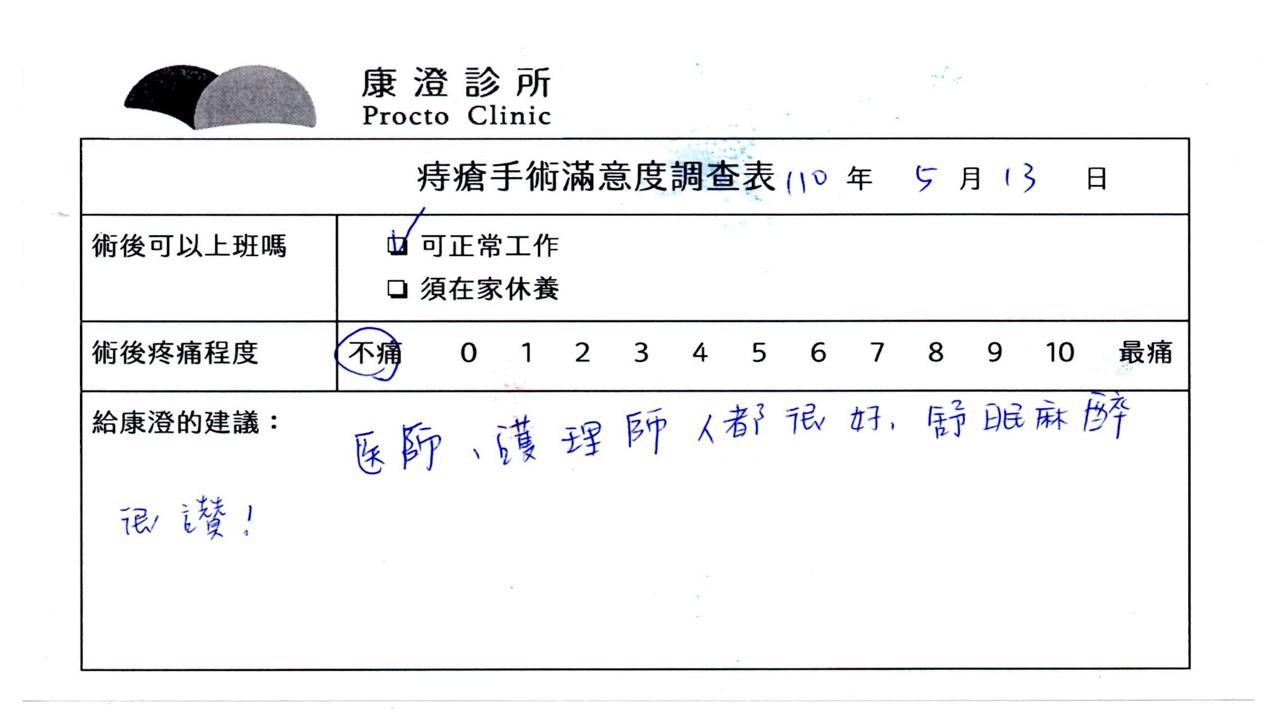 康澄診所
Procto Clinic
痔瘡手術滿意度調查表 110 年 5 月 13 日
術後可以上班嗎 ☑ 可正常工作
❏ 須在家休養
術後疼痛程度 不痛 0 1 2 3 4 5 6 7 8 9 10 最痛
給康澄的建議： 医師、護理師人都很好, 舒眠麻醉
很讚!